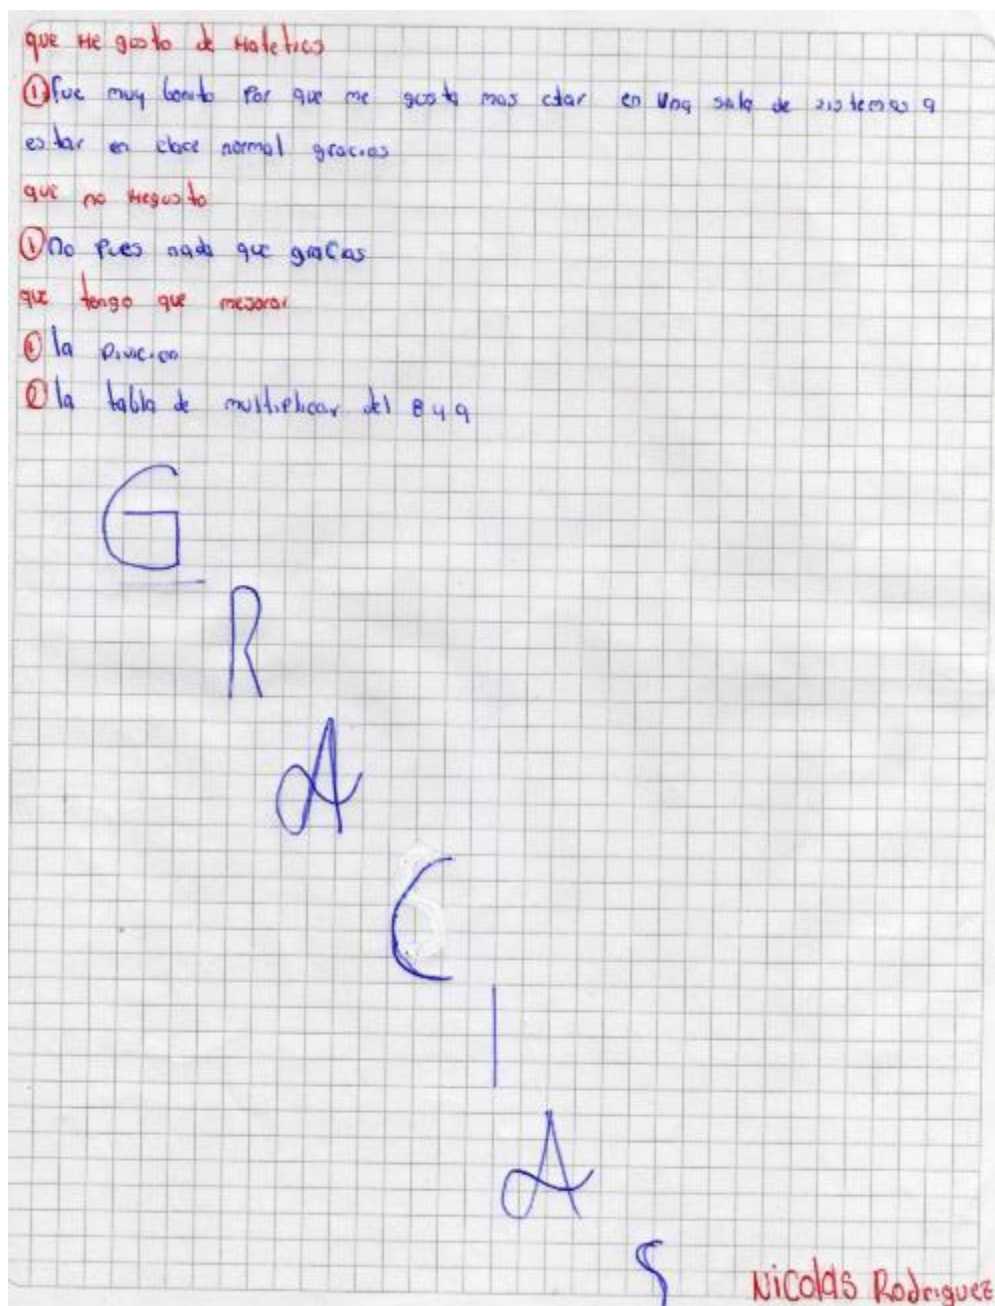 que Me gusto de Matetics
① fue muy bonito Por que me gusta mas estar en Una sala de sistemas a
estar en clace normal gracias
que no Megusto
① no Pues nada que gracias
que tengo que mejorar
① la Divicion
② la tabla de multiplicar del 8 y 9
G
R
A
C
I
A
S
Nicolas Rodriguez